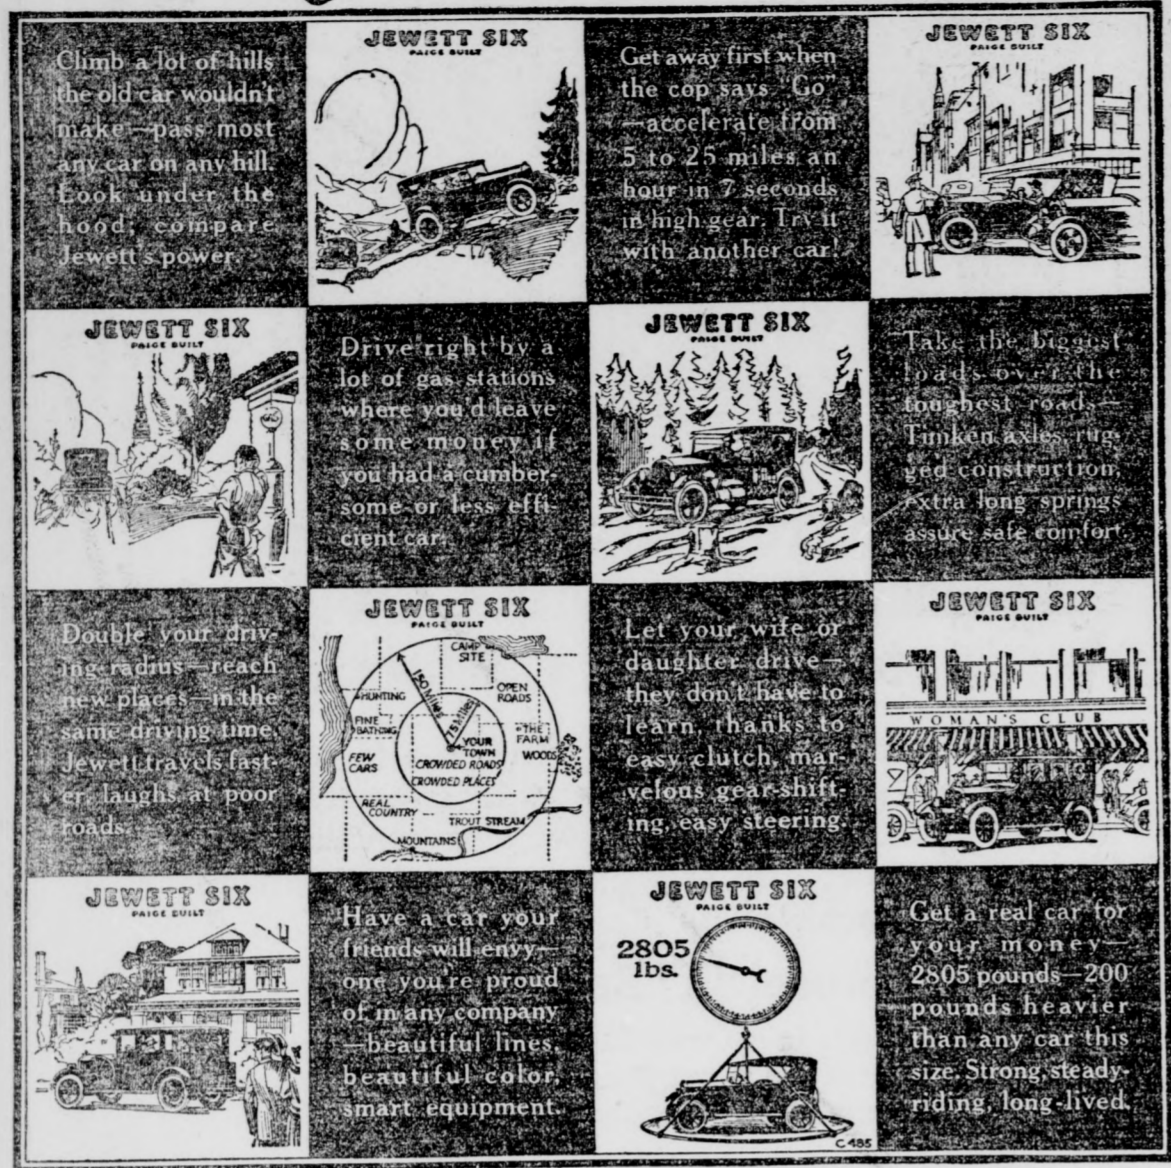 Climb a lot of hills
the old car wouldn't
make—pass most
any car on any hill.
Look under the
hood; compare
Jewett's power.
JEWETT SIX
PAIGE BUILT
Get away first when
the cop says "Go"
—accelerate from
5 to 25 miles an
hour in 7 seconds
in high gear. Try it
with another car!
JEWETT SIX
PAIGE BUILT
JEWETT SIX
PAIGE BUILT
Drive right by a
lot of gas stations
where you'd leave
some money if
you had a cumber-
some or less effi-
cient car.
JEWETT SIX
PAIGE BUILT
Take the biggest
loads over the
toughest roads—
Timken axles, rug-
ged construction,
extra long springs
assure safe comfort.
Double your driv-
ing radius—reach
new places—in the
same driving time.
Jewett travels fast-
er, laughs at poor
roads.
JEWETT SIX
PAIGE BUILT
CAMP
SITE
150 MILES
HUNTING
OPEN
ROADS
75 MILES
FINE
BATHING
THE
FARM
YOUR
TOWN
WOODS
FEW
CARS
CROWDED ROADS
CROWDED PLACES
REAL
COUNTRY
TROUT STREAM
MOUNTAINS
Let your wife or
daughter drive—
they don't have to
learn, thanks to
easy clutch, mar-
velous gear-shift-
ing, easy steering.
JEWETT SIX
PAIGE BUILT
WOMAN'S CLUB
JEWETT SIX
PAIGE BUILT
Have a car your
friends will envy—
one you're proud
of in any company
—beautiful lines,
beautiful color,
smart equipment.
JEWETT SIX
PAIGE BUILT
2805
lbs.
C 485
Get a real car for
your money—
2805 pounds—200
pounds heavier
than any car this
size. Strong, steady-
riding, long-lived.